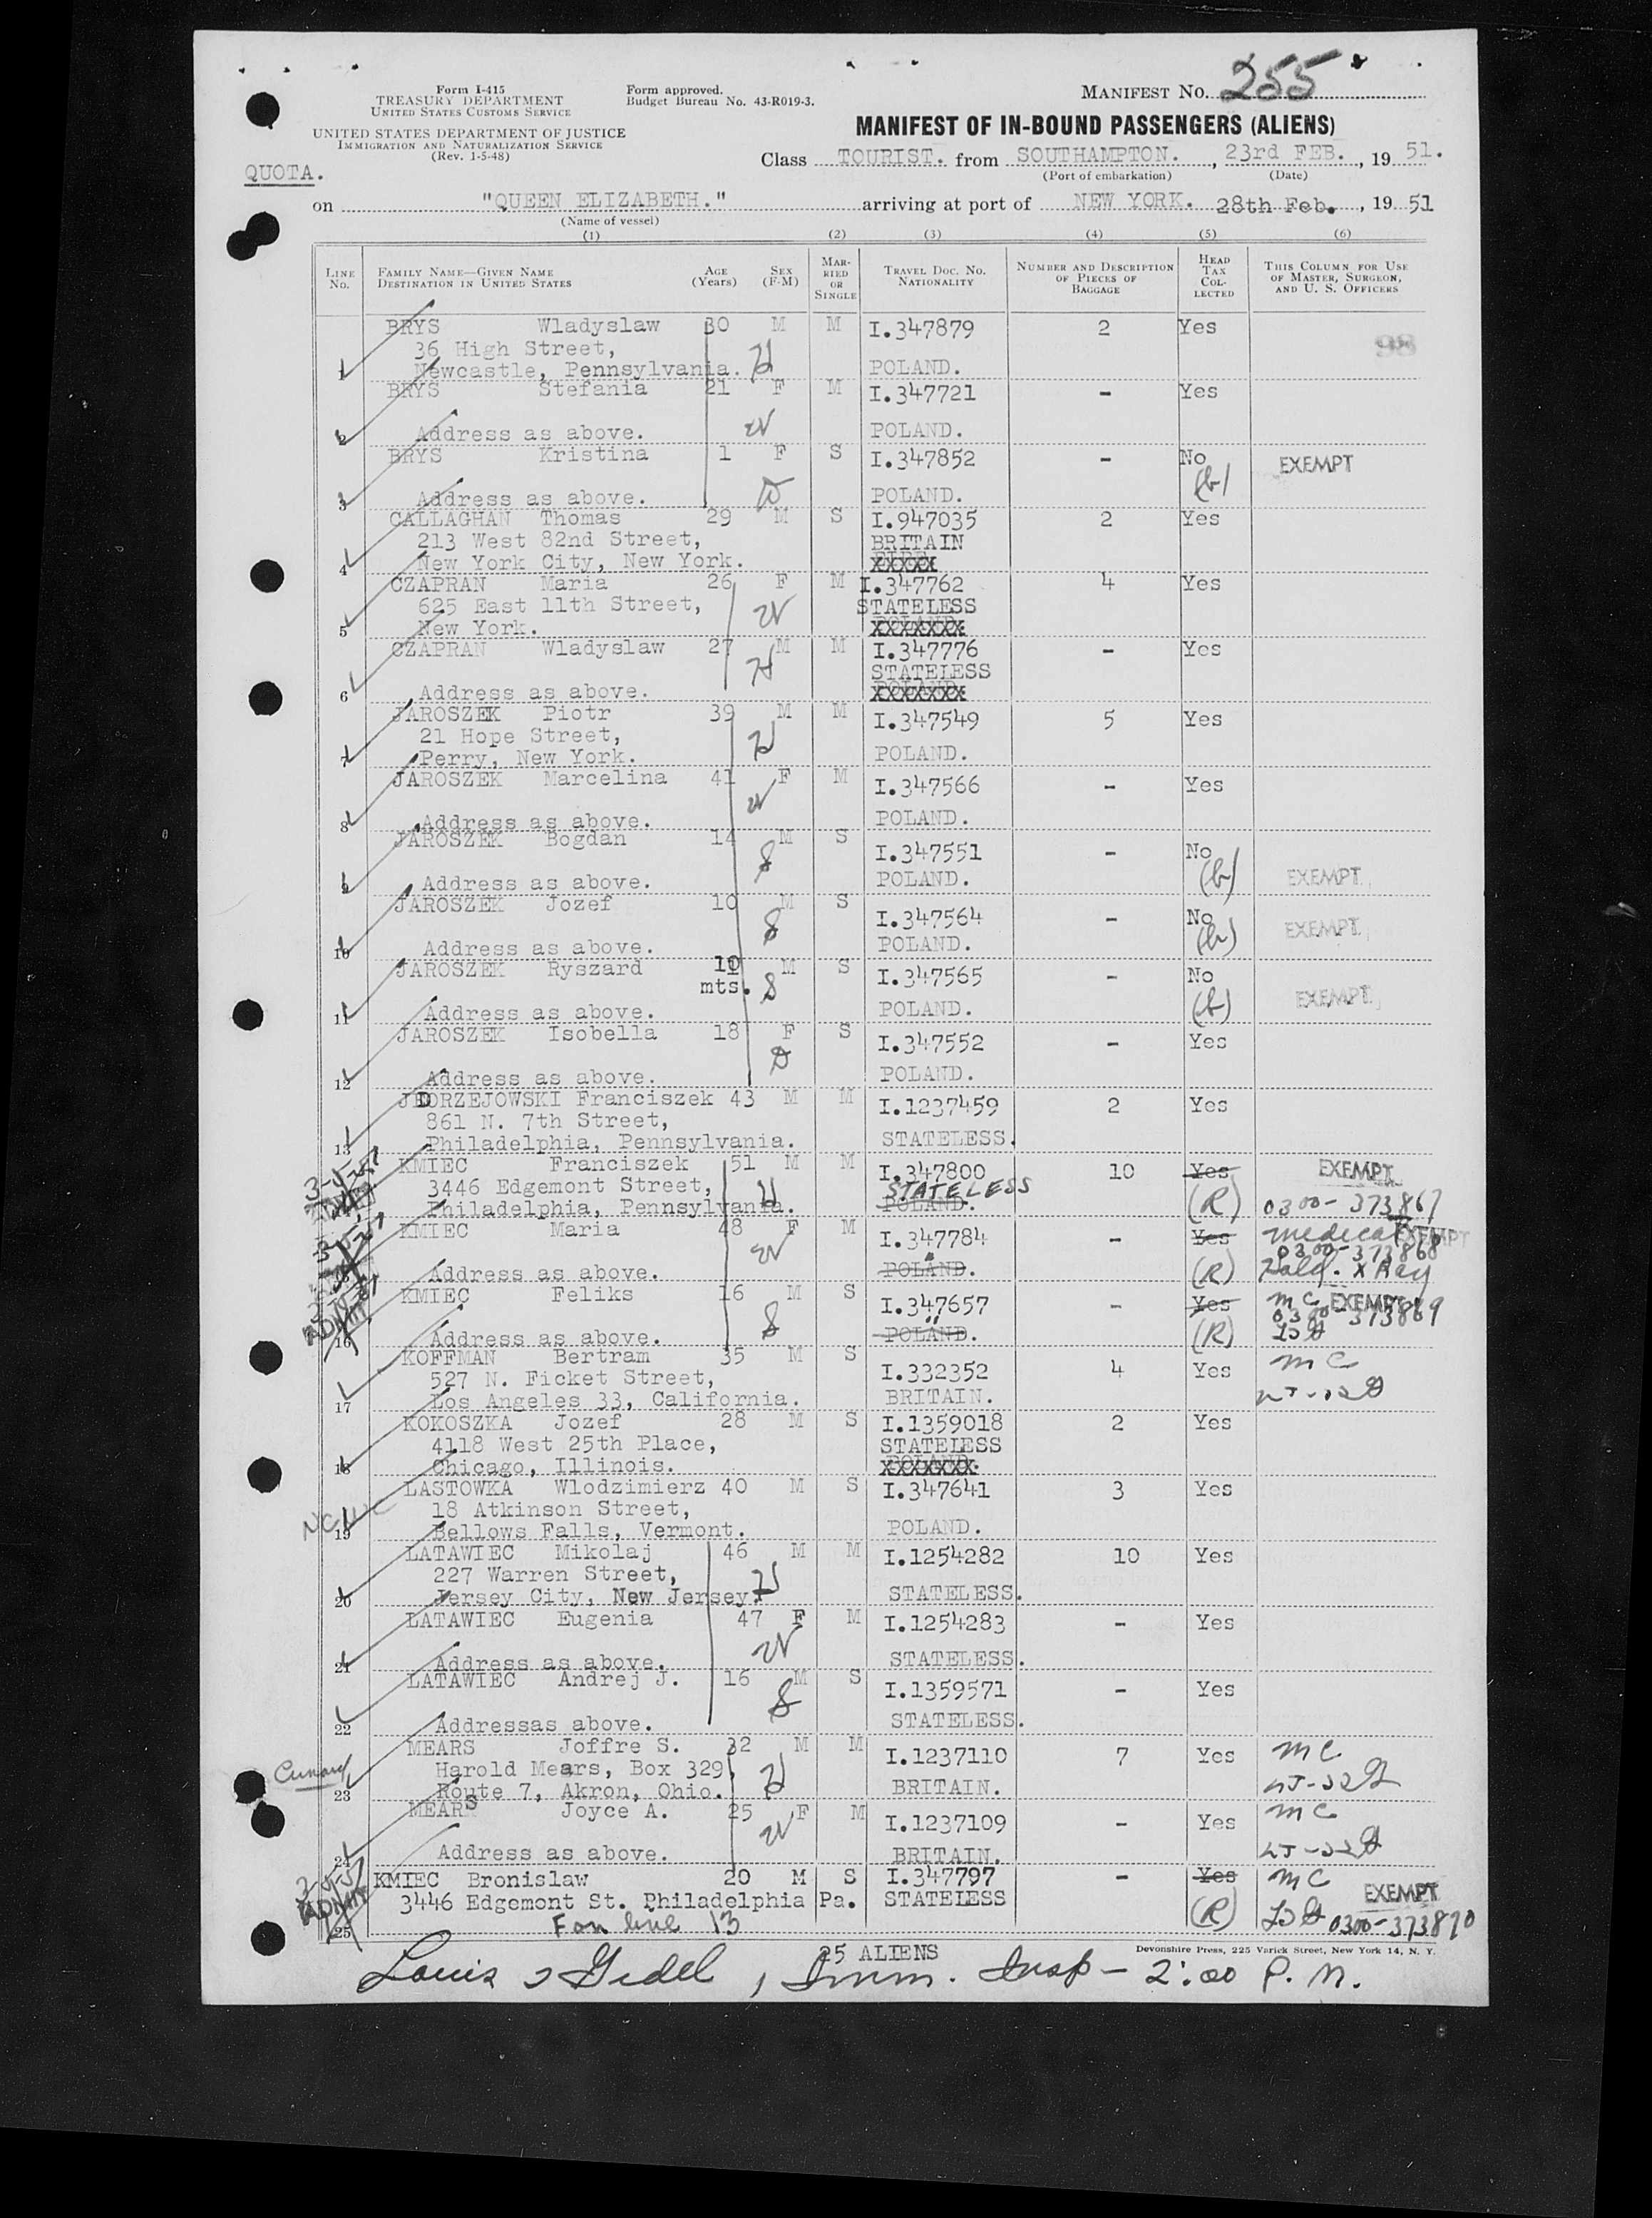 Form I-415
TREASURY DEPARTMENT
UNITED STATES CUSTOMS SERVICE
UNITED STATES DEPARTMENT OF JUSTICE
IMMIGRATION AND NATURALIZATION SERVICE
(Rev. 1-5-48)
Form approved.
Budget Bureau No. 43-R019-3.
MANIFEST NO. 255
MANIFEST OF IN-BOUND PASSENGERS (ALIENS)
QUOTA.
Class TOURIST. from SOUTHAMPTON. , 23rd FEB. , 19 51.
(Port of embarkation) (Date)
on "QUEEN ELIZABETH." arriving at port of NEW YORK. 28th Feb. , 19 51
(Name of vessel)
(1) (2) (3) (4) (5) (6)
LINE NO. FAMILY NAME—GIVEN NAME DESTINATION IN UNITED STATES AGE (Years) SEX (F-M) MARRIED OR SINGLE TRAVEL DOC. NO. NATIONALITY NUMBER AND DESCRIPTION OF PIECES OF BAGGAGE HEAD TAX COLLECTED THIS COLUMN FOR USE OF MASTER, SURGEON, AND U. S. OFFICERS
BRYS Wladyslaw 30 M M I.347879 2 Yes 98
36 High Street, H
1 Newcastle, Pennsylvania. POLAND.
BRYS Stefania 21 F M I.347721 - Yes
2 Address as above. W POLAND.
BRYS Kristina 1 F S I.347852 - No EXEMPT
3 Address as above. D POLAND. (b)
CALLAGHAN Thomas 29 M S I.947035 2 Yes
213 West 82nd Street, BRITAIN
4 New York City, New York. XXXXX
CZAPRAN Maria 26 F M I.347762 4 Yes
625 East 11th Street, W STATELESS
5 New York. XXXXXXX
CZAPRAN Wladyslaw 27 M M I.347776 - Yes
H STATELESS
6 Address as above. XXXXXXX
JAROSZEK Piotr 39 M M I.347549 5 Yes
21 Hope Street, H
7 Perry, New York. POLAND.
JAROSZEK Marcelina 41 F M I.347566 - Yes
8 Address as above. W POLAND.
JAROSZEK Bogdan 14 M S I.347551 - No
9 Address as above. S POLAND. (b) EXEMPT.
JAROSZEK Jozef 10 M S I.347564 - No EXEMPT.
10 Address as above. S POLAND. (b)
JAROSZEK Ryszard 10 M S I.347565 - No
mts. S EXEMPT.
11 Address as above. POLAND. (b)
JAROSZEK Isobella 18 F S I.347552 - Yes
12 Address as above. D POLAND.
JEDRZEJOWSKI Franciszek 43 M M I.1237459 2 Yes
861 N. 7th Street,
13 Philadelphia, Pennsylvania. STATELESS.
KMIEC Franciszek 51 M M I.347800 10 Yes EXEMPT
3446 Edgemont Street, H STATELESS
Philadelphia, Pennsylvania. POLAND. (R) 0300-373867
KMIEC Maria 48 F M I.347784 - Yes Medical EXEMPT
W " 0300-373868
15 Address as above. POLAND. (R) Hold. X Ray
KMIEC Feliks 16 M S I.347657 - Yes MC EXEMPT
ADMIT S " 0300-373869
16 Address as above. POLAND. (R)
KOFFMAN Bertram 35 M S I.332352 4 Yes MC
527 N. Ficket Street,
17 Los Angeles 33, California. BRITAIN.
KOKOSZKA Jozef 28 M S I.1359018 2 Yes
4118 West 25th Place, STATELESS
18 Chicago, Illinois. XXXXXXX
LASTOWKA Wlodzimierz 40 M S I.347641 3 Yes
18 Atkinson Street,
19 Bellows Falls, Vermont. POLAND.
LATAWIEC Mikolaj 46 M M I.1254282 10 Yes
227 Warren Street, H
20 Jersey City, New Jersey. STATELESS.
LATAWIEC Eugenia 47 F M I.1254283 - Yes
21 Address as above. W STATELESS.
LATAWIEC Andrej J. 16 M S I.1359571 - Yes
22 Addressas above. S STATELESS.
MEARS Joffre S. 32 M M I.1237110 7 Yes MC
Cunard Harold Mears, Box 329, H
23 Route 7, Akron, Ohio. BRITAIN.
MEARS Joyce A. 25 F M I.1237109 - Yes MC
24 Address as above. W BRITAIN.
KMIEC Bronislaw 20 M S I.347797 - Yes MC EXEMPT
ADMIT 3446 Edgemont St. Philadelphia Pa. STATELESS (R) 0300-373870
25 For line 13
25 ALIENS Devonshire Press, 225 Varick Street, New York 14, N. Y.
Louis Gidel, Imm. Insp - 2:00 P. M.